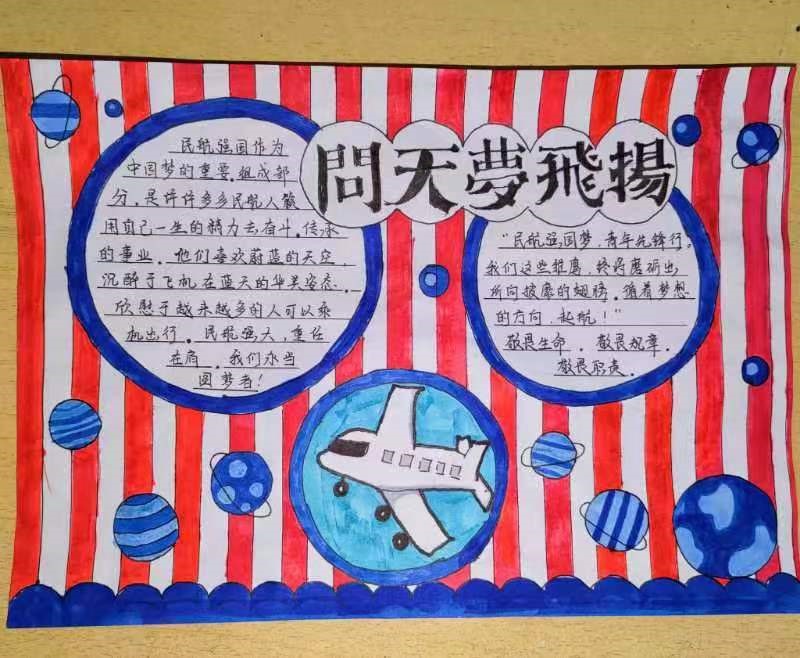 問天夢飛揚
民航强国作为
中国梦的重要组成部
分，是许许多多民航人愿
用自己一生的精力去奋斗、传承
的事业。他们喜欢蔚蓝的天空，
沉醉于飞机在蓝天的华美姿态，
欣慰于越来越多的人可以乘
机出行。民航强大，重任
在肩，我们亦当
圆梦者！
“民航强国梦，青年先锋行。
我们这些雏鹰，终将磨砺出
所向披靡的翅膀，循着梦想
的方向，起航！”
敬畏生命、敬畏规章、
敬畏职责。